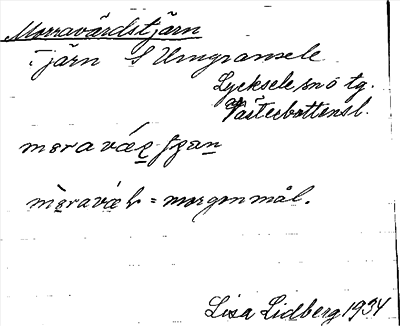 Morravårdstjärn
Tjärn S Umgransele
Lycksele snö tg.
Västerbottensl.
moravæṛ
= morgonmål.
Lisa Lidberg 1934